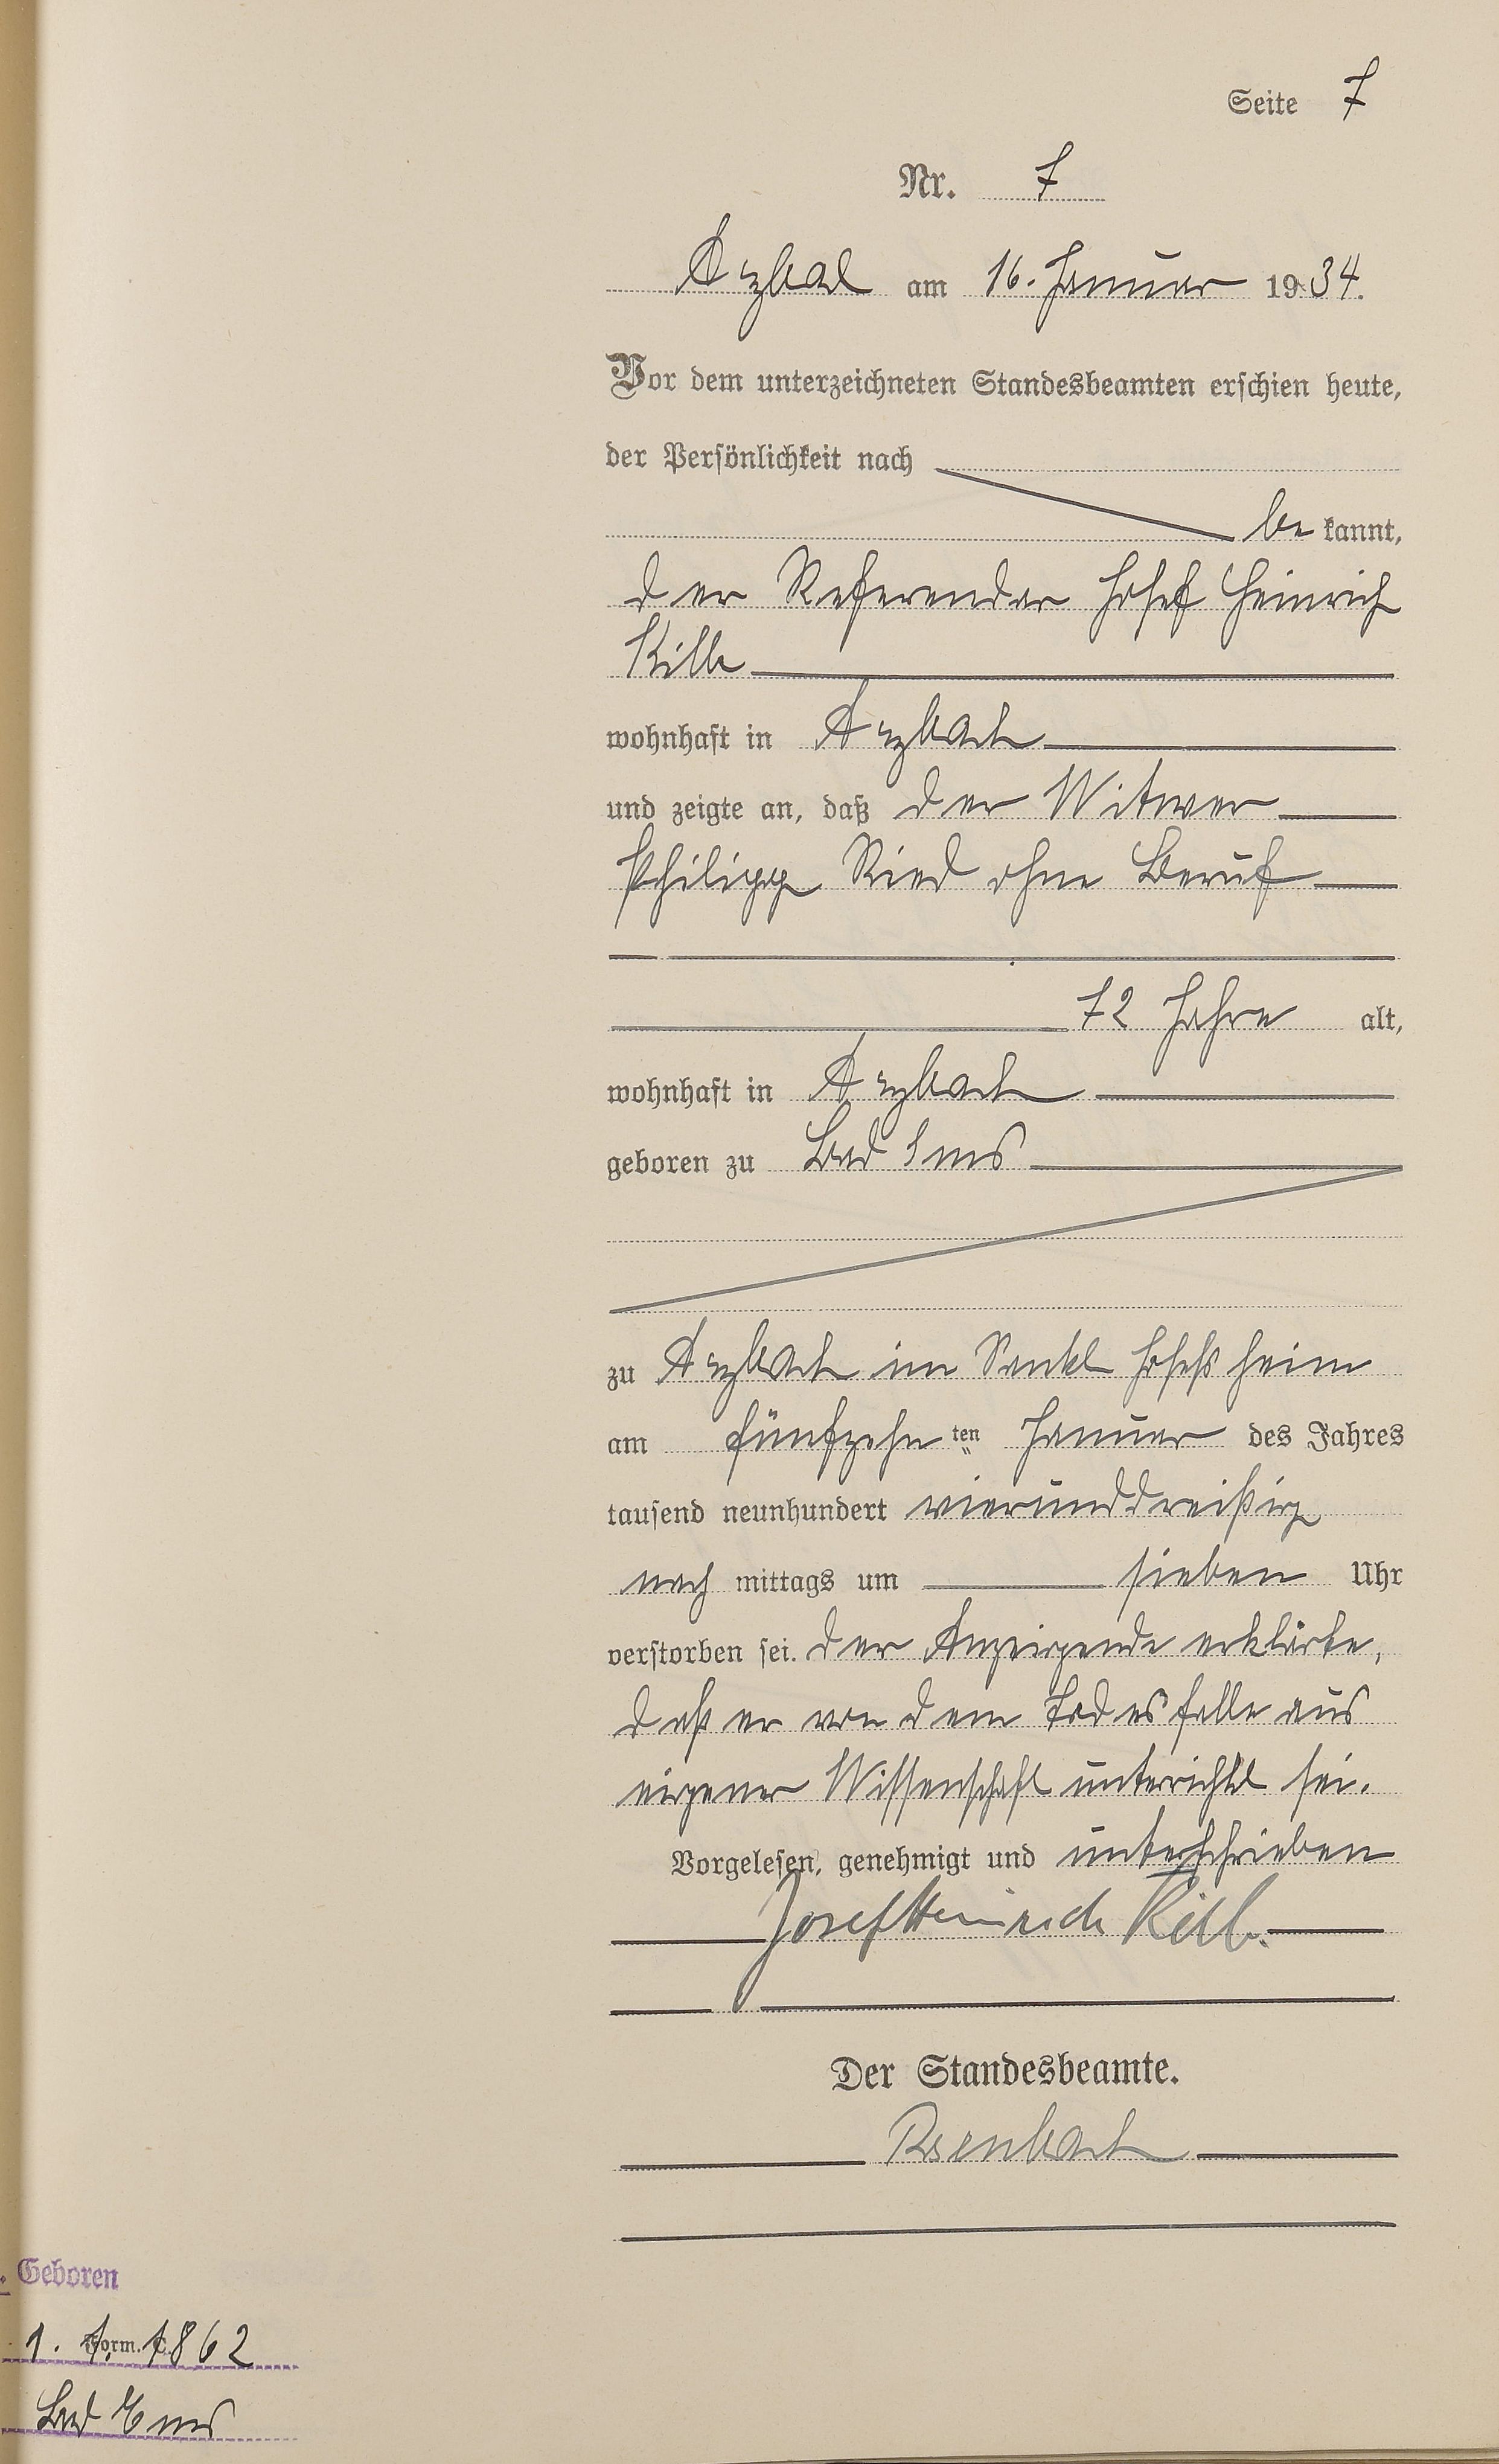 Seite 7
Nr. 7
Arzbach am 16. Januar 1934.
Vor dem unterzeichneten Standesbeamten erschien heute,
der Persönlichkeit nach
be kannt,
der Referendar Josef Heinrich
Kilb
wohnhaft in Arzbach
und zeigte an, daß der Witwer
Philipp Ried ohne Beruf
72 Jahre alt,
wohnhaft in Arzbach
geboren zu Bad Ems
zu Arzbach im Sankt Josefsheim
am fünfzehn ten Januar des Jahres
tausend neunhundert vierunddreißig
nach mittags um sieben Uhr
verstorben sei. Der Anzeigende erklärte,
daß er von dem Todesfalle aus
eigener Wissenschaft unterrichtet sei.
Vorgelesen, genehmigt und unterschrieben
Josef Heinrich Kilb.
Der Standesbeamte.
Geboren
1. 1. 1862
Form. C.
Bad Ems